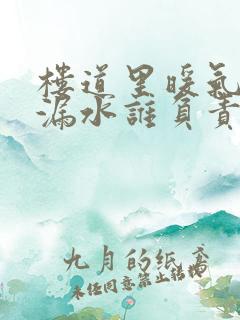 楼道里暖氣
漏水誰負責
九月的纸鸢
未经同意禁止转载